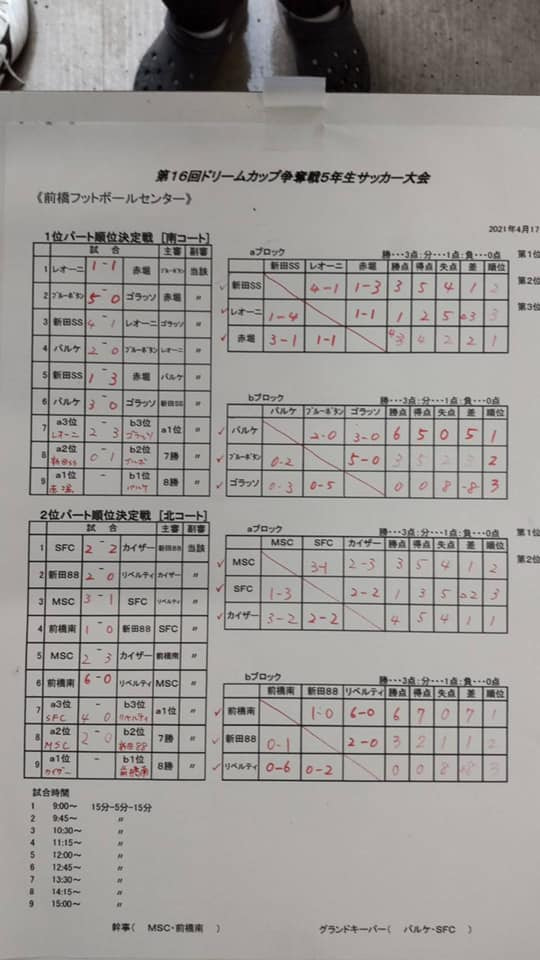 第16回ドリームカップ争奪戦5年生サッカー大会
《前橋フットボールセンター》
2021年4月17
1位パート順位決定戦 [南コート]
試合 主審 副審
1 レオーニ 1-1 赤堀 ブルーボタン 当該
2 ブルーボタン 5-0 ゴラッソ 赤堀 〃
3 新田SS 4-1 レオーニ ゴラッソ 〃
4 パルケ 2-0 ブルーボタン レオーニ 〃
5 新田SS 1-3 赤堀 パルケ 〃
6 パルケ 3-0 ゴラッソ 新田SS 〃
7 a3位 レオーニ 2-3 b3位 ゴラッソ a1位 〃
8 a2位 新田SS 0-1 b2位 7勝 〃
9 a1位 赤堀 - b1位 パルケ 8勝 〃
aブロック 勝・・・3点:分・・・1点:負・・・0点
新田SS レオーニ 赤堀 勝点 得点 失点 差 順位
新田SS 4-1 1-3 3 5 4 1 2
レオーニ 1-4 1-1 1 2 5 △3 3
赤堀 3-1 1-1 4 4 2 2 1
第1位
第2位
第3位
bブロック 勝・・・3点:分・・・1点:負・・・0点
パルケ ブルーボタン ゴラッソ 勝点 得点 失点 差 順位
パルケ 2-0 3-0 6 5 0 5 1
ブルーボタン 0-2 5-0 3 5 2 3 2
ゴラッソ 0-3 0-5 0 0 8 -8 3
2位パート順位決定戦 [北コート]
試合 主審 副審
1 SFC 2-2 カイザー 新田88 当該
2 新田88 2-0 リベルティ カイザー 〃
3 MSC 3-1 SFC リベルティ 〃
4 前橋南 1-0 新田88 SFC 〃
5 MSC 2-3 カイザー 前橋南 〃
6 前橋南 6-0 リベルティ MSC 〃
7 a3位 SFC 4-0 b3位 リベルティ a1位 〃
8 a2位 MSC 2-0 b2位 新田88 7勝 〃
9 a1位 カイザー - b1位 前橋南 8勝 〃
aブロック 勝・・・3点:分・・・1点:負・・・0点
MSC SFC カイザー 勝点 得点 失点 差 順位
MSC 3-1 2-3 3 5 4 1 2
SFC 1-3 2-2 1 3 5 △2 3
カイザー 3-2 2-2 4 5 4 1 1
第1位
第2位
bブロック 勝・・・3点:分・・・1点:負・・・0点
前橋南 新田88 リベルティ 勝点 得点 失点 差 順位
前橋南 1-0 6-0 6 7 0 7 1
新田88 0-1 2-0 3 2 1 1 2
リベルティ 0-6 0-2 0 0 8 3
試合時間
1 9:00～ 15分-5分-15分
2 9:45～ 〃
3 10:30～ 〃
4 11:15～ 〃
5 12:00～ 〃
6 12:45～ 〃
7 13:30～ 〃
8 14:15～ 〃
9 15:00～ 〃
幹事( MSC・前橋南 ) グランドキーパー( パルケ・SFC )